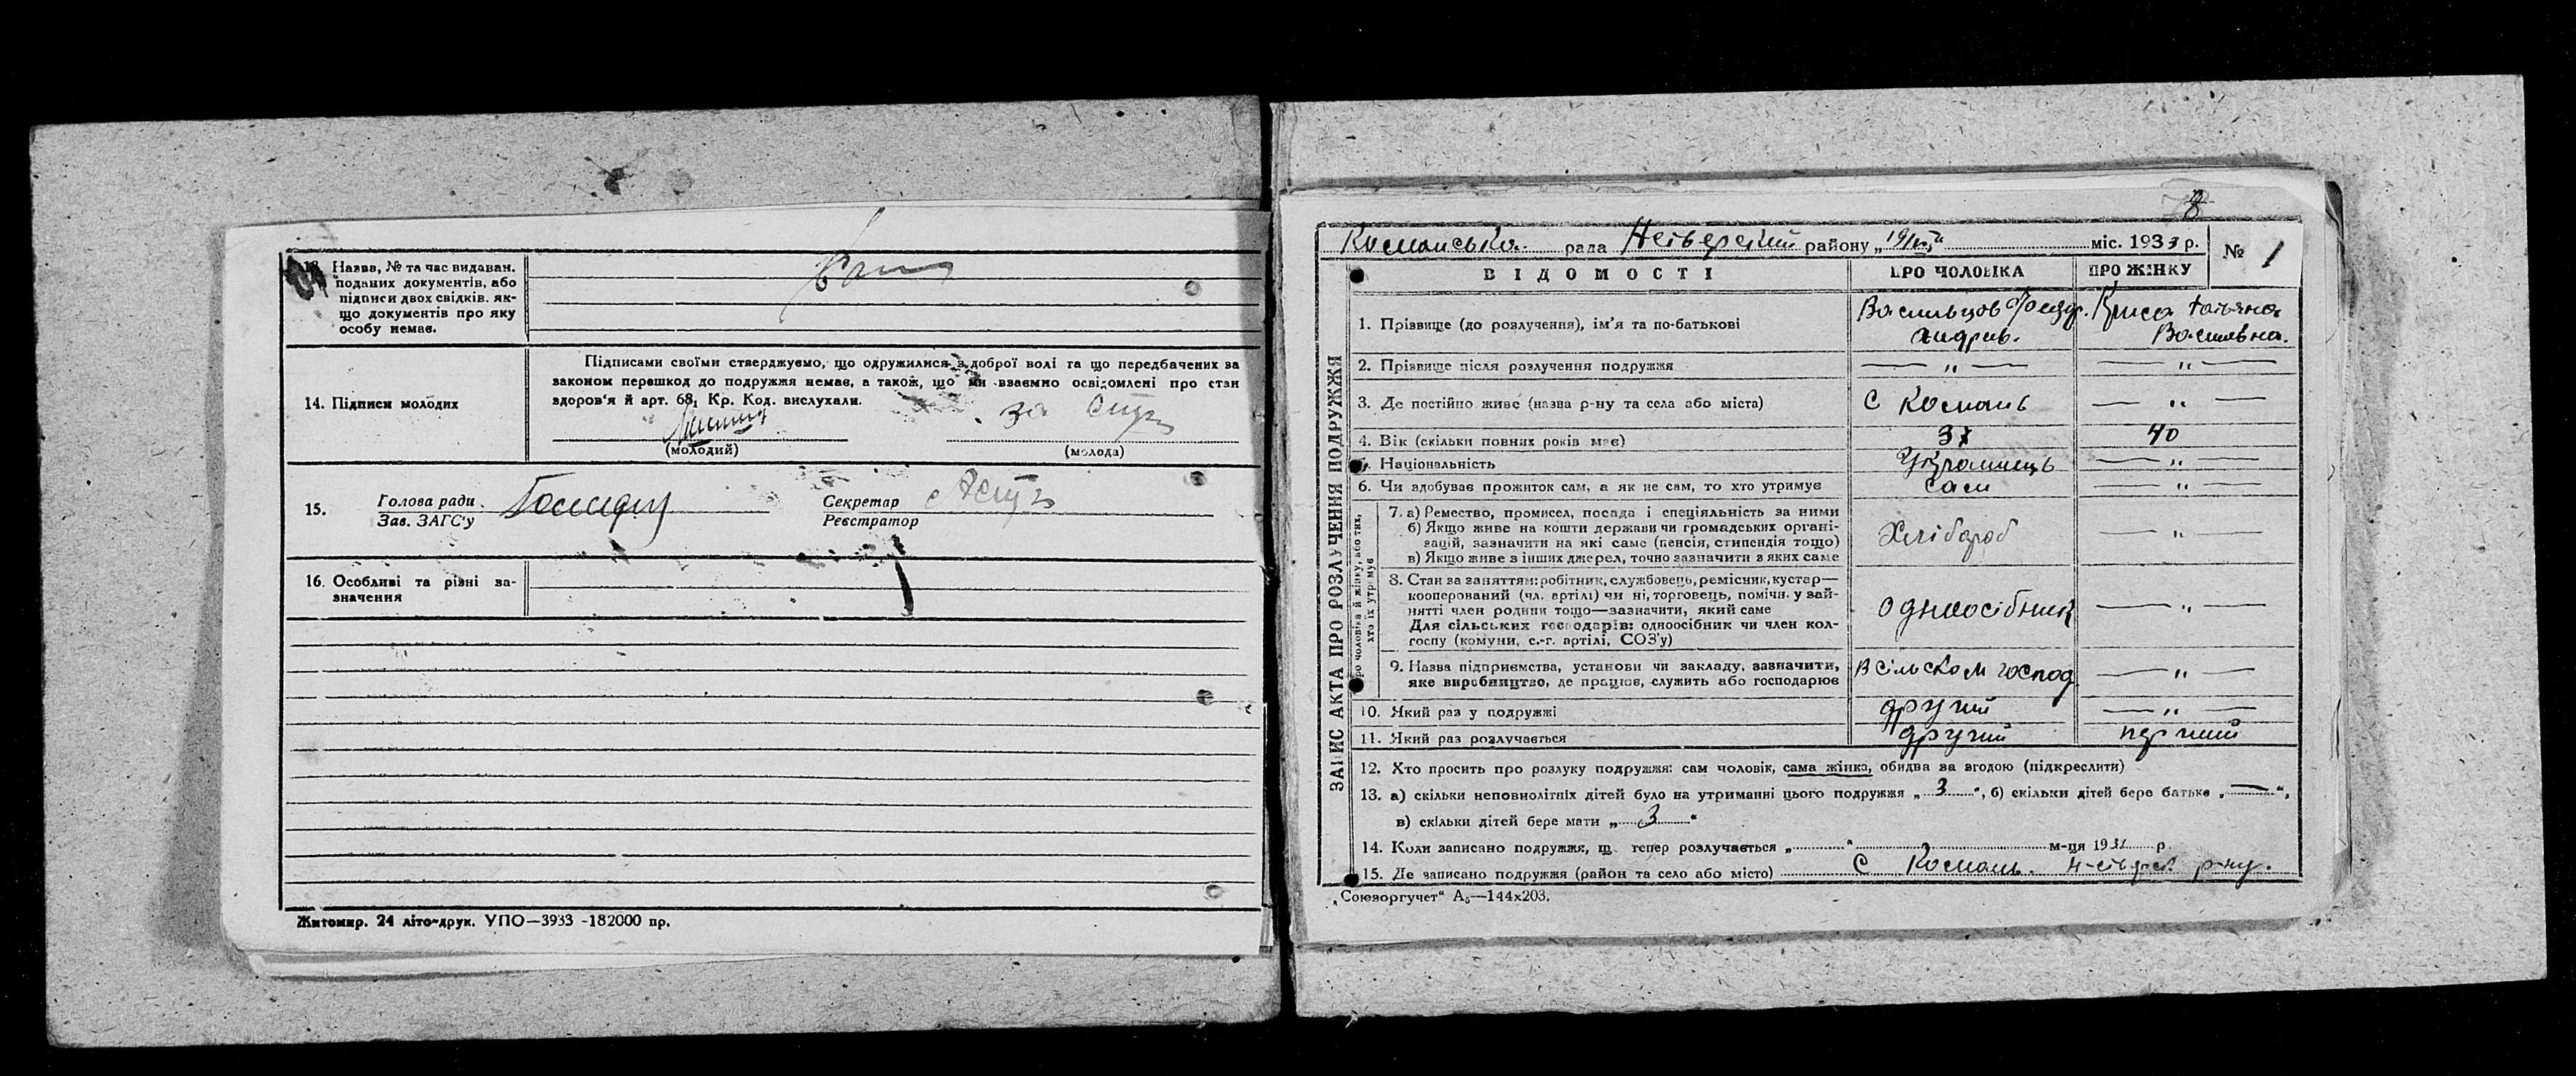 13. Назва, № та час видаван.
поданих документів, або
підписи двох свідків. як-
що документів про яку
особу немає.
14. Підписи молодих
Підписами своїми стверджуємо, що одружилися з доброї волі та що передбачених за
законом перешкод до подружжя немає, а також, що ми взаємно освідомлені про стан
здоров'я й арт. 68₁ Кр. Код. вислухали.
за
(молодий)
(молода)
15.
Голова ради
Зав. ЗАГС'у
Секретар
Реєстратор
16. Особливі та різні за-
значення
Житомир. 24 літо-друк. УПО—3933 -182000 пр.
8
рада району „ “ міс. 1933 р.
№ 1
ЗАПИС АКТА ПРО РОЗЛУЧЕННЯ ПОДРУЖЖЯ
ВІДОМОСТІ
ПРО ЧОЛОВІКА
ПРО ЖІНКУ
1. Прізвище (до розлучення), ім'я та по-батькові
Васильцов Федор.
Андрив.
Татьяна
Васильвна.
2. Прізвище після розлучення подружжя
— „ —
— „ —
3. Де постійно живе (назва р-ну та села або міста)
с Космань
— „ —
4. Вік (скільки повних років має)
37
40
5. Національність
Українець
— „ —
6. Чи здобуває прожиток сам, а як не сам, то хто утримує
сам
— „ —
Про чоловіка й жінку, або тих,
хто їх утримує
7. а) Ремество, промисел, посада і спеціяльність за ними
б) Якщо живе на кошти держави чи громадських органі-
зацій, зазначити на які саме (пенсія, стипендія тощо)
в) Якщо живе з інших джерел, точно зазначити з яких саме
Хлібороб
— „ —
8. Стан за заняттям: робітник, службовець, ремісник, кустар—
кооперований (чл. артілі) чи ні, торговець, помічн. у зай-
нятті член родини тощо—зазначити, який саме
Для сільських господарів: одноосібник чи член кол-
госпу (комуни, с.-г. артілі, СОЗ'у)
одноосібник
— „ —
9. Назва підприємства, установи чи закладу, зазначити,
яке виробництво, де працює, служить або господарює
В сільском господ.
— „ —
10. Який раз у подружжі
другий
— „ —
11. Який раз розлучається
другий
перший
12. Хто просить про розлуку подружжя: сам чоловік, сама жінка, обидва за згодою (підкреслити)
13. а) скільки неповнолітніх дітей було на утриманні цього подружжя „ 3 “, б) скільки дітей бере батько „ — “,
в) скільки дітей бере мати „ 3 “
14. Коли записано подружжя, що тепер розлучається „ “ м-ця 1931 р.
15. Де записано подружжя (район та село або місто) с Космань. р-ну.
„Союзоргучет“ А₅—144х203.